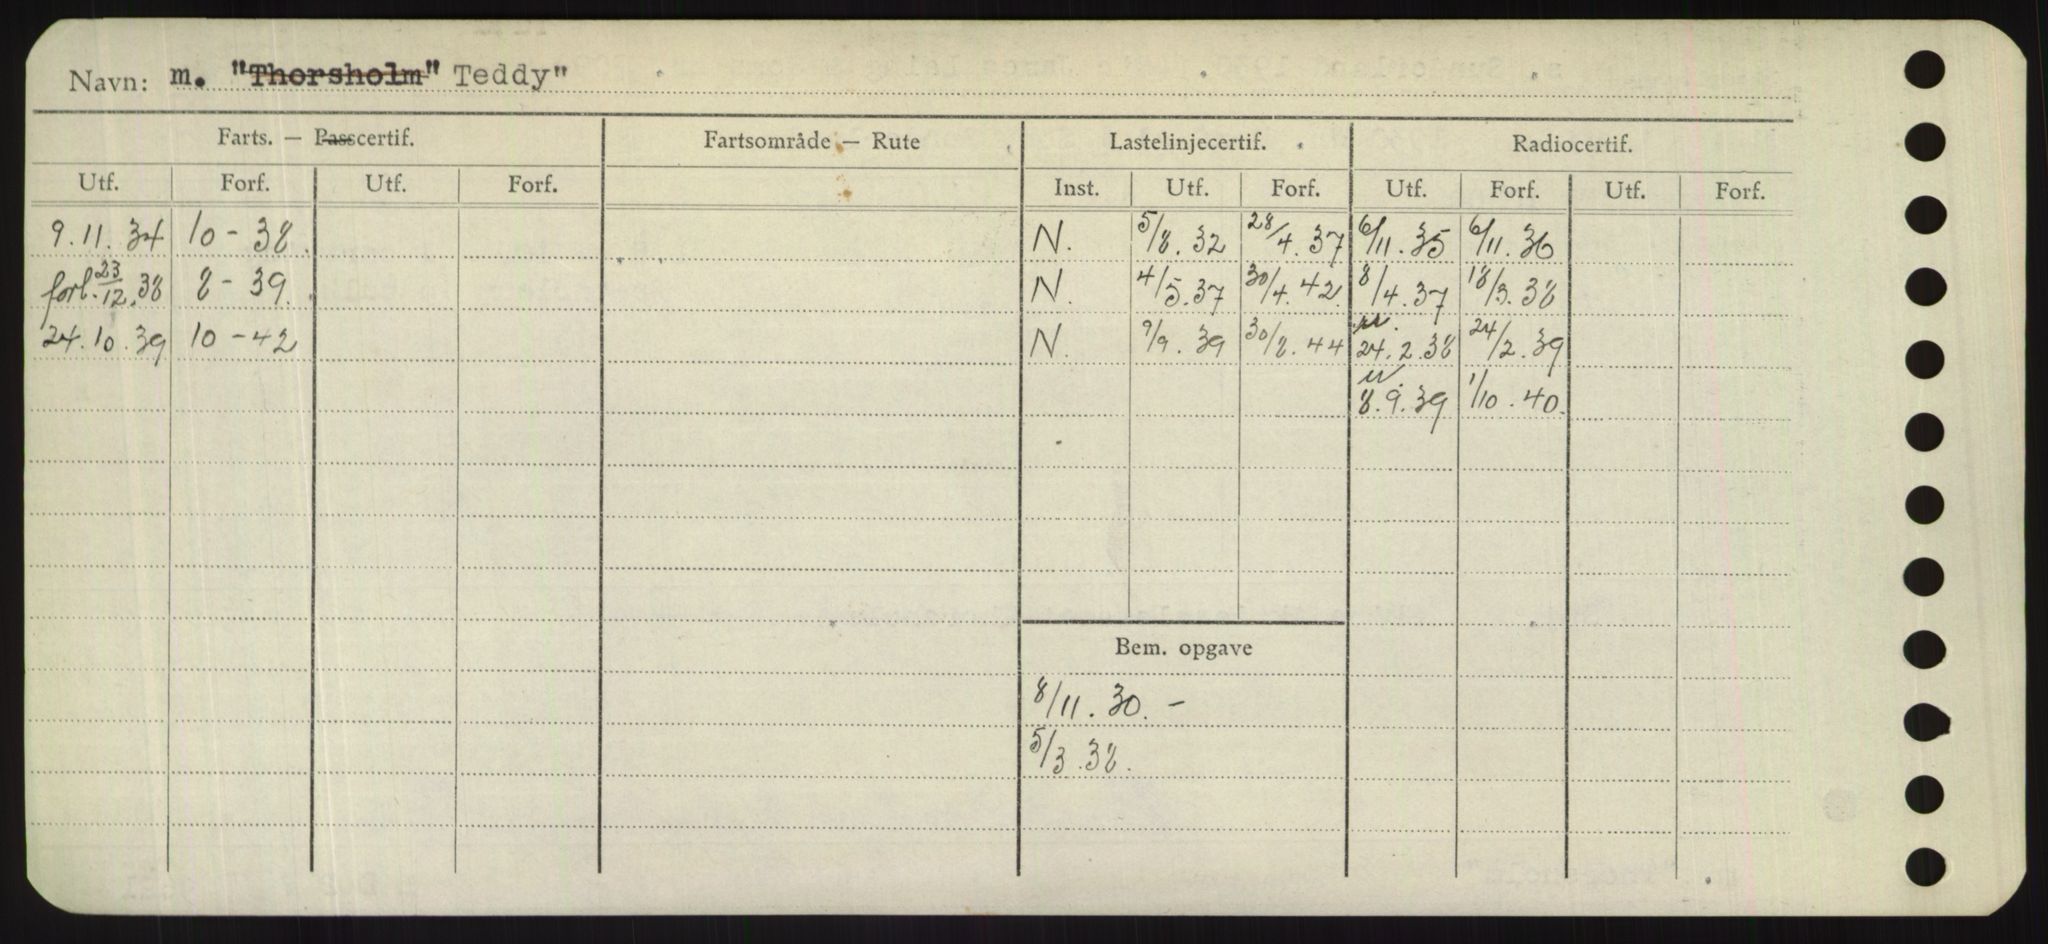 Navn: m. "Thorsholm" Teddy"
Farts. — Passcertif. Fartsområde — Rute Lastelinjecertif. Radiocertif.
Utf. Forf. Utf. Forf. Inst. Utf. Forf. Utf. Forf. Utf. Forf.
9.11.34 10-38. N. 5/8.32 28/4.37 6/11.35 6/11.36
forl. 23/12.38 8-39. N. 4/5.37 30/4.42 8/4.37 18/3.38
24.10.39 10-42 N. 9/9.39 30/8.44 24.2.38 24/2.39
8.9.39 1/10.40.
Bem. opgave
8/11.30.-
5/3.38.